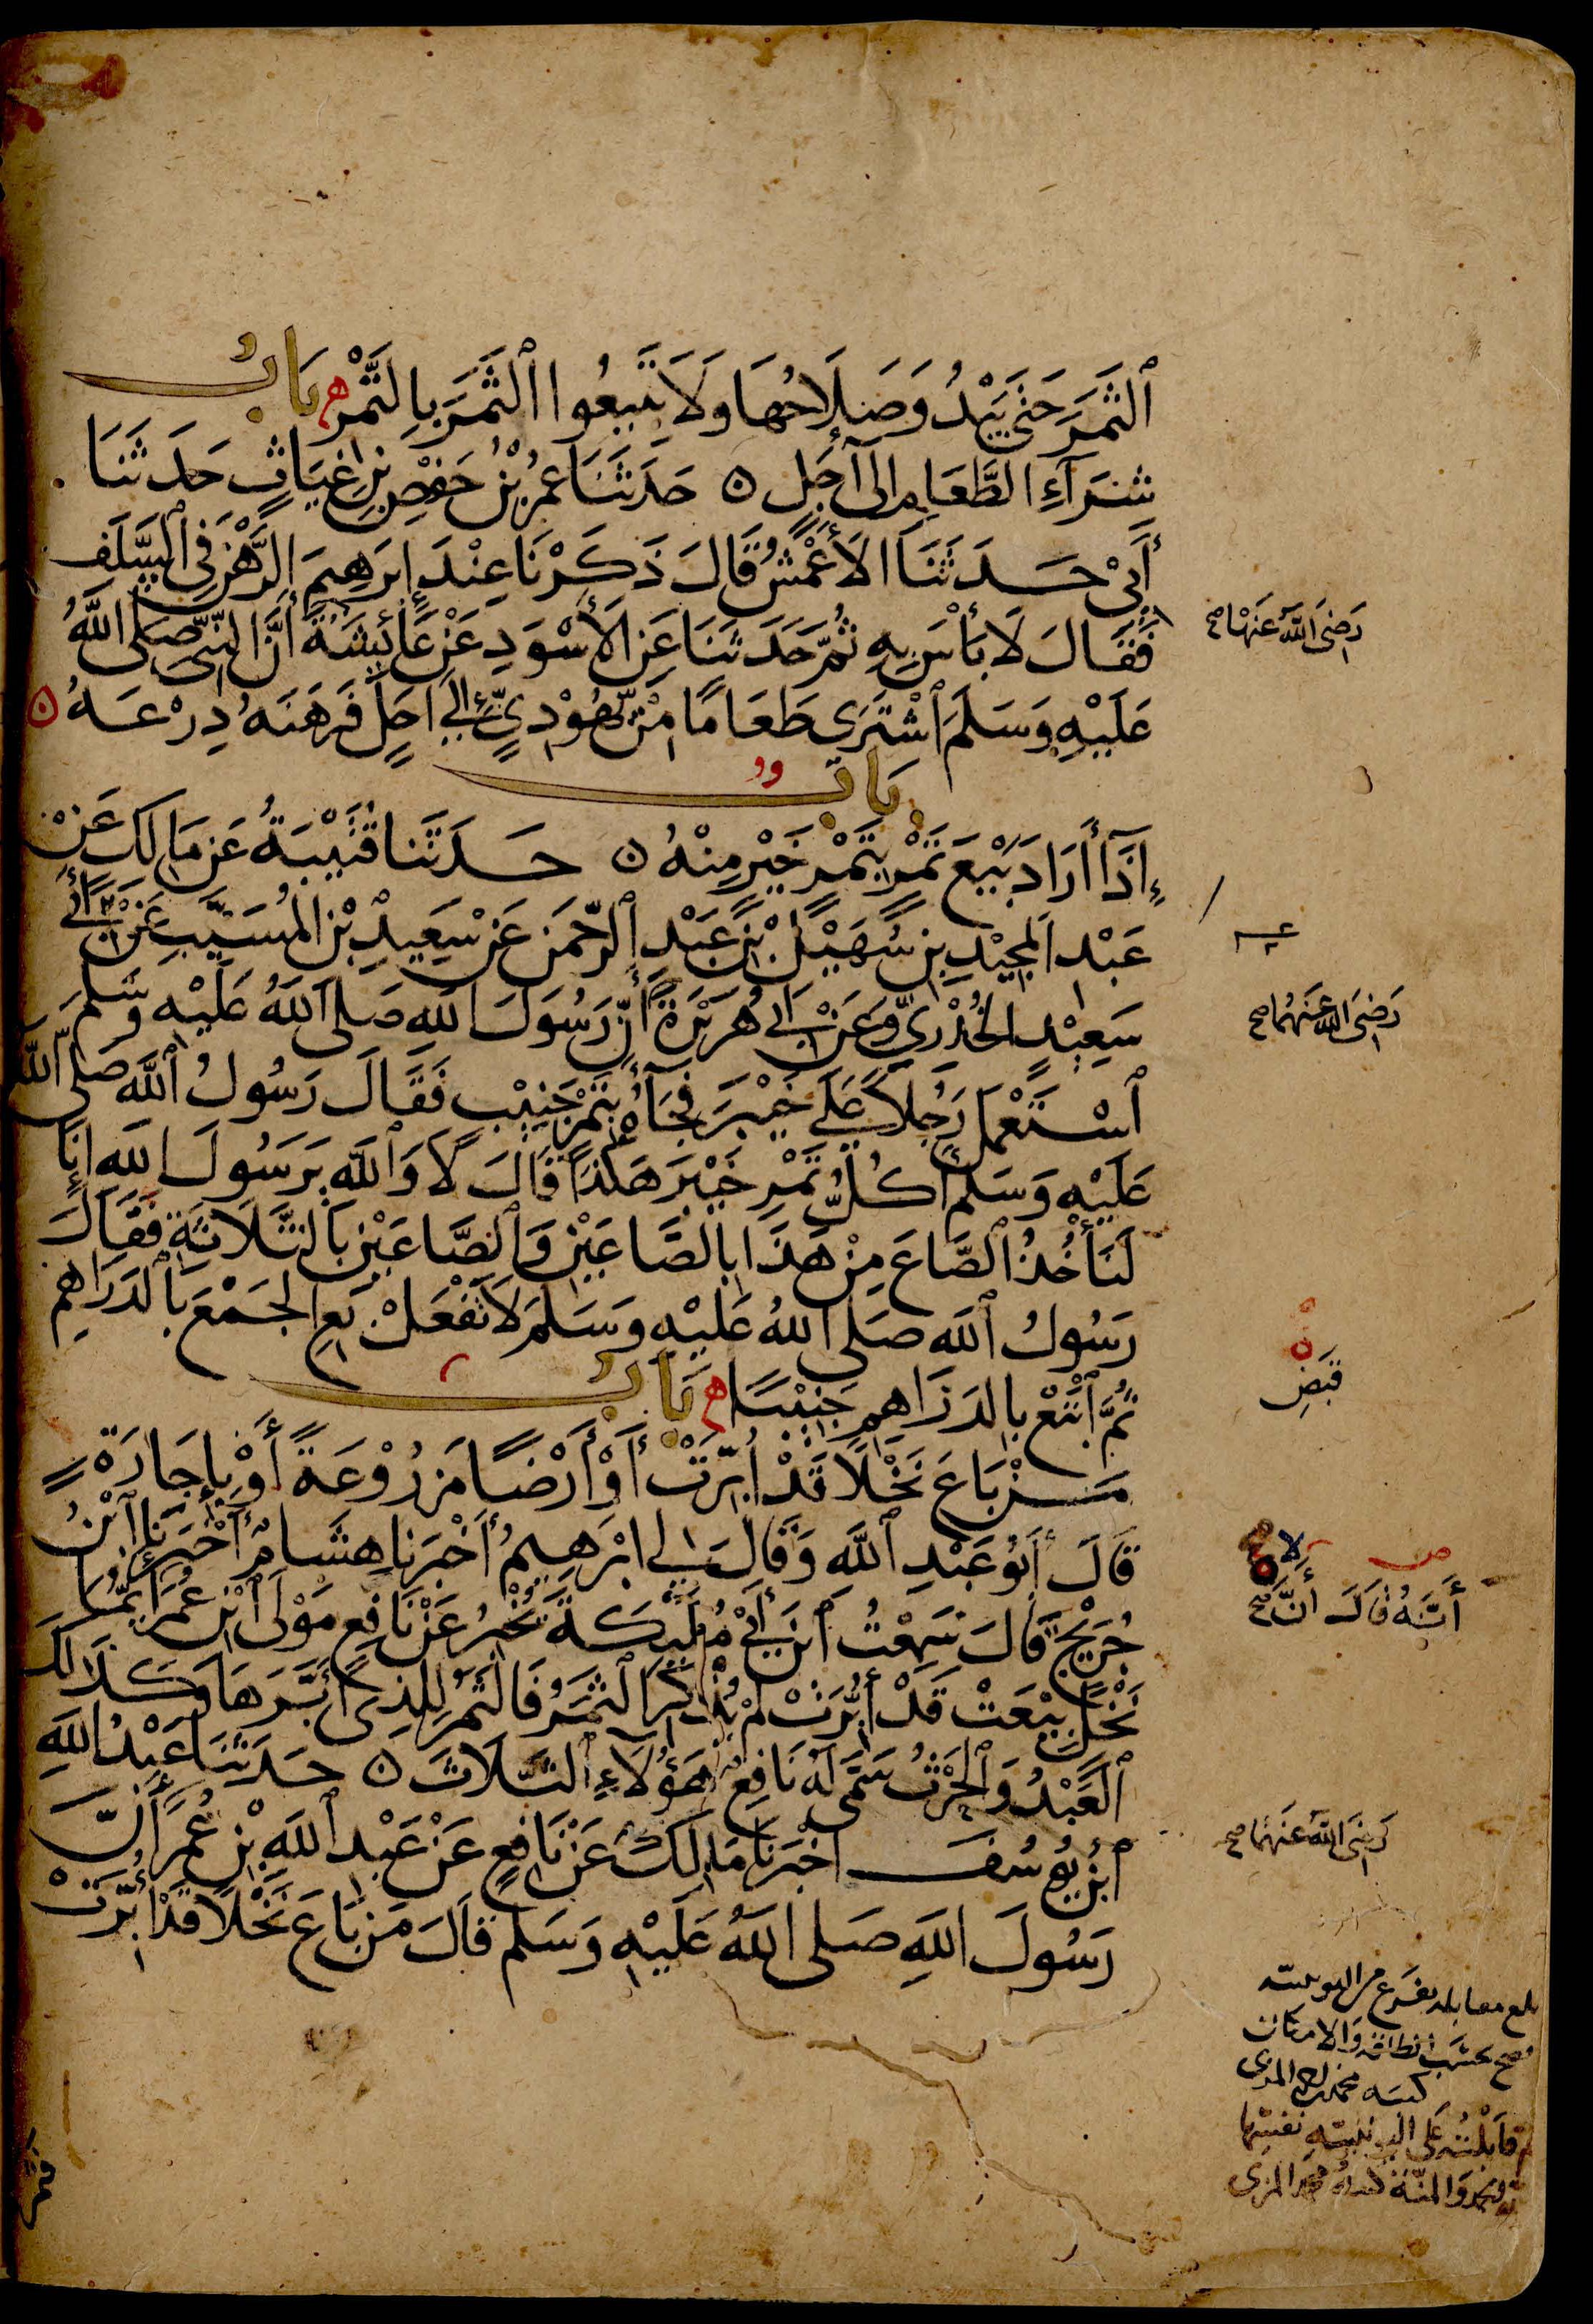 ٱلثَّمَرَ حَتَّى يَبْدُوَ صَلَاحُهَا وَلَا تَبِيعُوا ٱلثَّمَرَ بِالتَّمْرِ ه بَابُ
شِرَآءِ الطَّعَامِ إلى أَجَلٍ ٥ حَدَثَنَا عُمَرُ بْنُ حَفْصِ بْنِ غِيَاثٍ حَدَثَنَا
أَبِيْ حَدَثَنَا الأَعْمَشُ قَالَ ذَكَرْنَا عِنْدَ إِبرَهِيمَ الرَّهْنَ فِي ٱلسَّلَفِ
فَقَالَ لَا بَأْسَ بِهِ ثُمَّ حَدَثَنَا عَنِ الأَسْوَدِ عَنْ عَائِشَةَ أَنَّ النَّبِيَّ صَلَى اللَّهُ
رَضِىَ اللَّهُ عَنهَا صح
عَلَيْهِ وَسَلَمَ ٱشْتَرَى طَعَامًا مِنْ يَهُوْدِيٍّ إِلى أَجَلٍ فَرَهَنَهُ دِرْعَهُ ٥
بَابٌ
إِذَآ أَرَادَ بَيْعَ تَمْرٍ بِتَمْرٍ خَيْرٍ مِنْهُ ٥ حَدَثَنا قُتَيْبَةُ عَنْ مَالِكٍ عَنْ
عَبْدِ المَجِيْدِ بْنِ سُهَيْلِ بْنِ عَبْدِ ٱلرَّحمَنِ عَنْ سَعِيدِ بْنِ المُسَيَّبِ عَنْ أَبِي
سَعِيْدٍ الخُدْرِيِّ وَعَنْ أَبِي هُرَيْرَةَ أَنَّ رَسُولَ اللهِ صَلى اللهُ عَلَيْهِ وَسَلمَ
رَضِىَ اللهُ عَنهُمَا صح
ٱسْتَعْمَلَ رَجُلًا عَلَى خَيْبَرَ فَجَآءَهُ بِتَمْرٍ جَنِيْبٍ فَقَالَ رَسُولُ ٱللَّهِ صَلى اللَّهُ
عَلَيْهِ وَسَلمَ أَكُلُّ تَمْرِ خَيْبَرَ هَكَذَا قَالَ لَا وَٱللَّهِ يَرَسُولَ اللهِ إنَا
لَنَأْخُذُ ٱلصَّاعَ مِنْ هَذَا بِالصَّاعَيْنِ وَٱلصَّاعَيْنِ بِالثَّلَاثَةِ فَقَالَ
رَسُولُ ٱللَهِ صَلى اللهُ عَلَيْهِ وَسَلمَ لَا تَفْعَلْ بِعِ الجَمْعَ بِالدَرَاهِمِ
ثُمَّ ٱبْتَعْ بِالدَرَاهِمِ جَنِيْبًا ه بَابُ
قبَضِ
مَنْ بَاعَ نَخْلًا قَدْ أُبِّرَتْ أَوْ أَرْضًا مَزْرُوْعَةً أَوْ بِإِجَارَةٍ
قَالَ أَبُو عَبْدِ ٱللَّهِ وَقَالَ لِي إبْرَهِيمُ أَخْبَرَنا هِشَامٌ أَخْبَرَنا ٱبْنُ
جُرَيْجٍ قَالَ سَمِعْتُ ٱبْنَ أَبِيْ مُلَيْكَةَ يُخْبِرُ عَنْ نَافِعٍ مَوْلَى ٱبْنِ عُمَرَ أَيُّمَا
أَنَّهُ قَالَ أَنَّ صح
نَخْلٍ بِيْعَتْ قَدْ أُبِّرَتْ لَمْ يُذْكَرِ ٱلثَّمَرُ فَالثَمَرُ لِلَّذِى أَبَّرَهَا وَكَذَالِكَ
ٱلْعَبْدُ وَٱلْحَرْثُ سَمَّى لَهُ نَافِعٌ هَؤُلَاءِ ٱلثَّلَاثَ ٥ حَدَثَنَا عَبْدُ اللهِ
ٱبْنُ يُوسُفَ أَخْبَرَنَا مَالِكٌ عَنْ نَافِعٍ عَنْ عَبْدِ ٱللَهِ بْنِ عُمَرَ أَنَّ
رَضِىَ اللهُ عَنهُمَا صح
رَسُولَ اللهِ صَلى اللهُ عَلَيْهِ وَسَلمَ قَالَ مَنْ بَاعَ نَخْلًا قَدْ أُبِّرَتْ
بلغ مقابلة بفرع من اليونينية
فصح بحسَب الطاقة وَالامكان
كتبه محمد المزى
قابَلْتُه عَلى اليونينية نفسِها